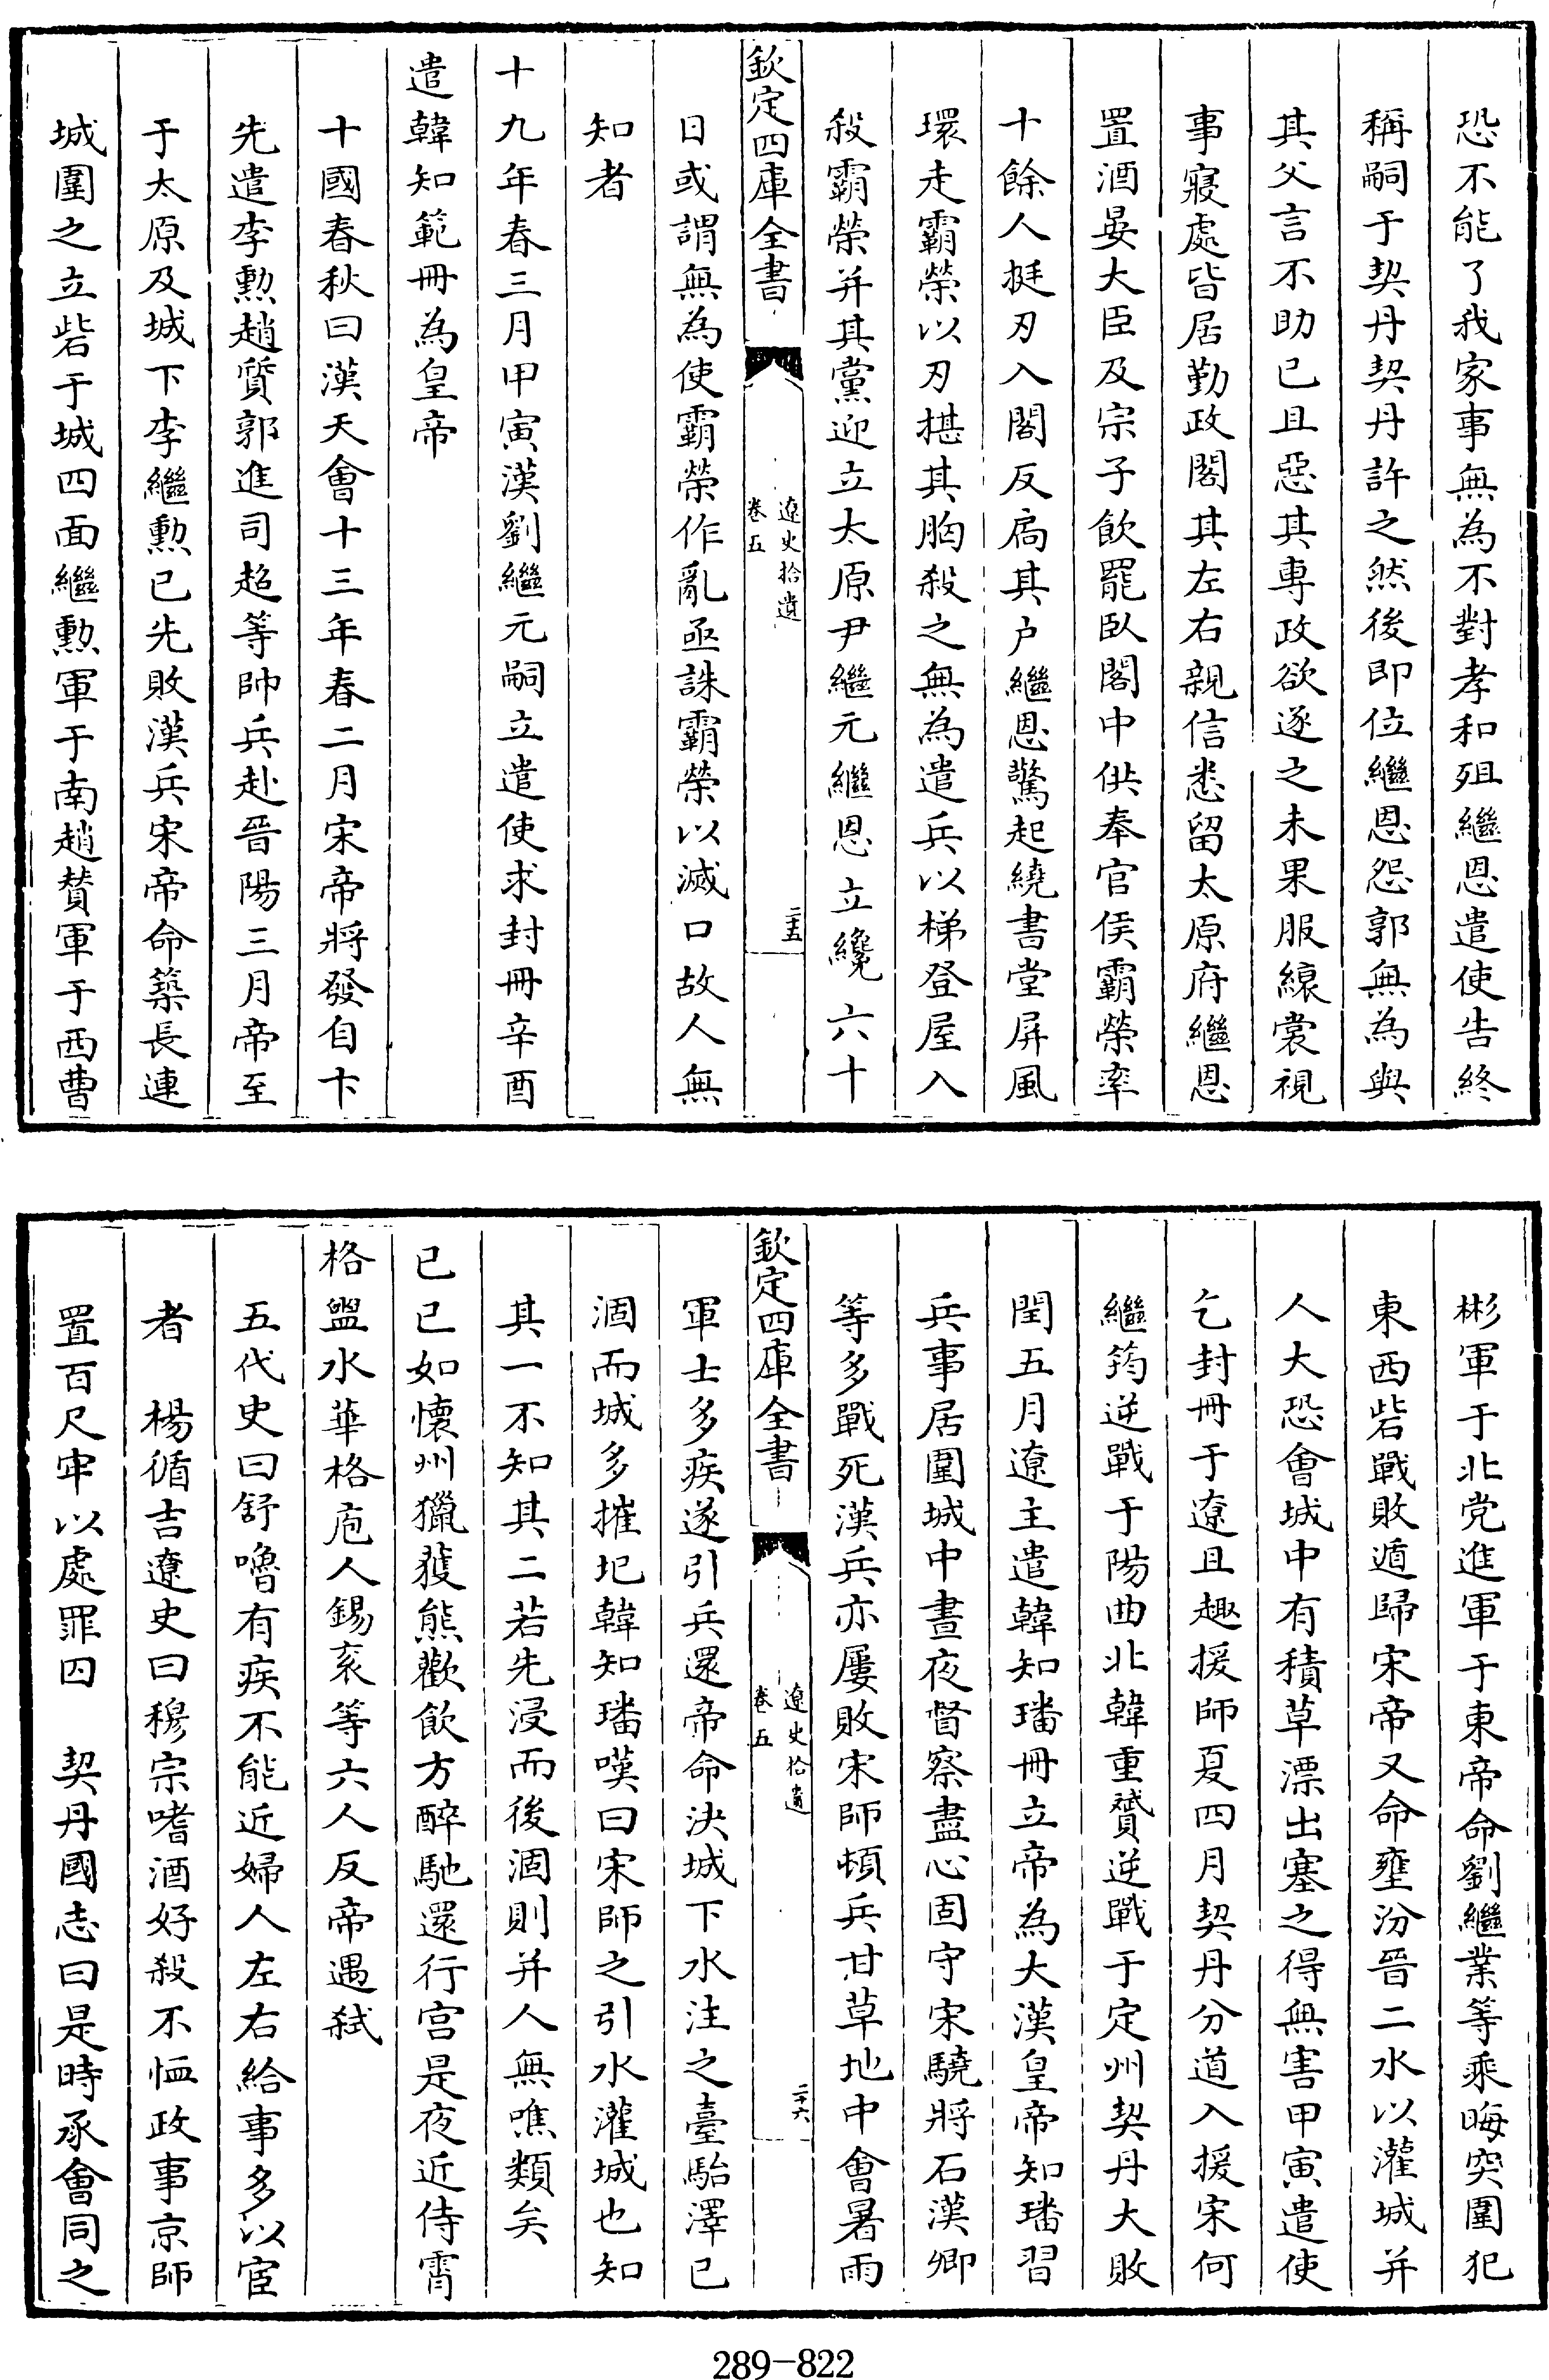 恐不能了我家事無為不對孝和殂繼恩遣使告終
稱嗣于契丹契丹許之然後即位繼恩怨郭無為與
其父言不助已且惡其專政欲逐之未果服縗裳視
事寢處皆居勤政閣其左右親信悉留太原府繼恩
置酒晏大臣及宗子飲罷臥閣中供奉官侯霸榮率
十餘人挺刃入閣反扃其户繼恩驚起繞書堂屏風
環走霸榮以刃揕其胸殺之無為遣兵以梯登屋入
殺霸榮并其黨迎立太原尹繼元繼恩立纔六十
欽定四庫全書
遼史拾遺
卷五
二十五
日或謂無為使霸榮作亂亟誅霸榮以滅口故人無
知者
十九年春三月甲寅漢劉繼元嗣立遣使求封冊辛酉
遣韓知範冊為皇帝
十國春秋曰漢天會十三年春二月宋帝將發自卞
先遣李勲趙質郭進司超等帥兵赴晉陽三月帝至
于太原及城下李繼勲已先敗漢兵宋帝命築長連
城圍之立砦于城四面繼勲軍于南趙賛軍于西曹
彬軍于北党進軍于東帝命劉繼業等乘晦突圍犯
東西砦戰敗遁歸宋帝又命壅汾晉二水以灌城并
人大恐會城中有積草漂出塞之得無害甲寅遣使
乞封冊于遼且趣援師夏四月契丹分道入援宋何
繼筠逆戰于陽曲北韓重贇逆戰于定州契丹大敗
閏五月遼主遣韓知璠冊立帝為大漢皇帝知璠習
兵事居圍城中晝夜督察盡心固守宋驍將石漢卿
等多戰死漢兵亦屢敗宋師頓兵甘草地中會暑雨
欽定四庫全書
遼史拾遺
卷五
二十六
軍士多疾遂引兵還帝命決城下水注之臺駘澤已
涸而城多摧圮韓知璠嘆曰宋師之引水灌城也知
其一不知其二若先浸而後涸則并人無噍類矣
已巳如懷州獵獲熊歡飲方醉馳還行宮是夜近侍霄
格盥水華格庖人錫衮等六人反帝遇弑
五代史曰舒嚕有疾不能近婦人左右給事多以宦
者　楊循吉遼史曰穆宗嗜酒好殺不恤政事京師
置百尺牢以處罪囚　契丹國志曰是時承會同之
289-822